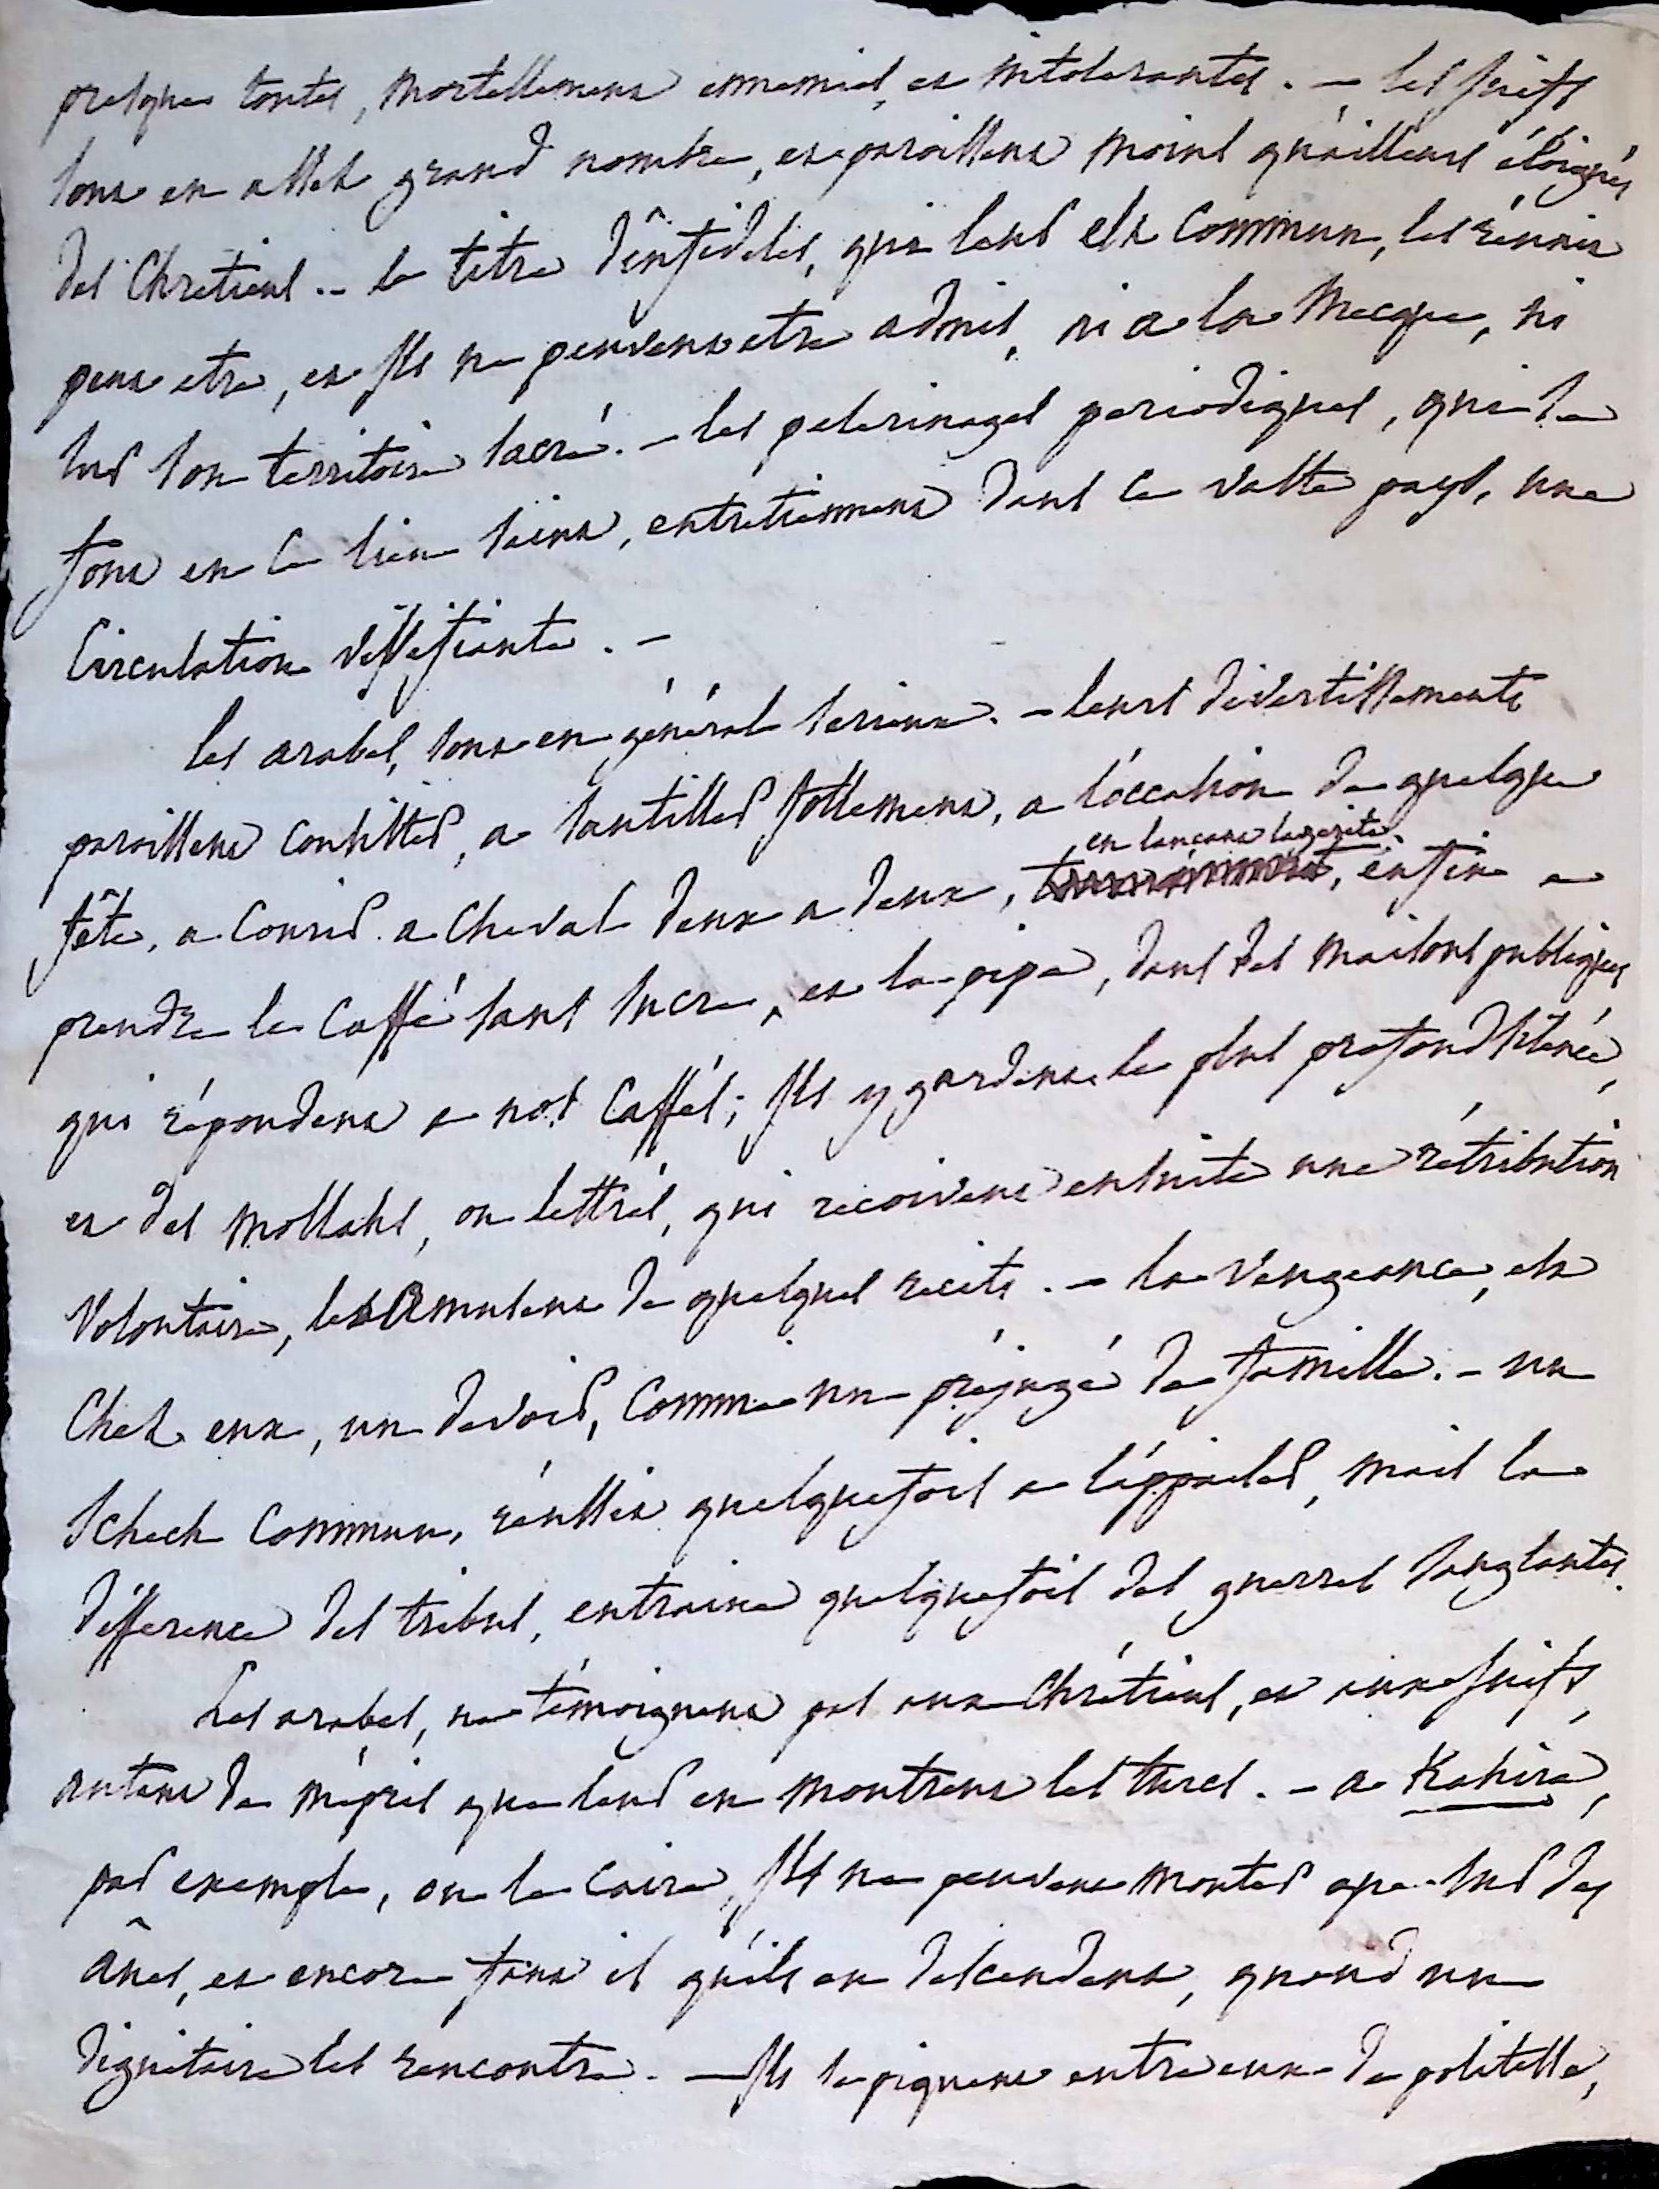 presque toutes, mortellement ennemies, et intolerantes. - les juifs
sont en assez grand nombre, et paroissent moins qu'ailleurs éloignés
des Chretiens. - le titre d'infideles, qui leur est commun, les réunit
peut etre, et ils ne peuvent etre admis, ni a la Mecque, ni
sur son territoire sacré. - les pelerinages periodiques, qui se
font en ce lieu saint, entretiennent dans ce vaste pays, une
Circulation vivifiante. -
les arabes, sont en général serieux. - leurs divertissements
paroissent consister, a sautiller follement, a l'occasion de quelque
fête, a courir a cheval deux a deux, en lançant la gerite, enfin a
prendre le caffé sans sucre, et la pipe, dans des maisons publiques
qui répondent a nos caffés; ils y gardent le plus profond silence,
et des mollahs, ou lettrés, qui recoivent ensuite une rétribution
volontaire, les amusent de quelques recits. - la vengeance, est
chez eux, un devoir, comme un préjugé de famille. - un
scheck commun, réussit quelquefois a l'appaiser, mais la
différence des tribus, entraine quelquefois des guerres sanglantes.
Les arabes, ne témoignent pas aux Chrétiens, et aux juifs,
autant de mépris que leur en montrent les turcs. - a Kahira,
par exemple, ou le Caire, ils ne peuvent monter que sur des
ânes, et encore faut il qu'ils en descendent, quand un
dignitaire les rencontre. - ils se piquent entre eux de politesse,